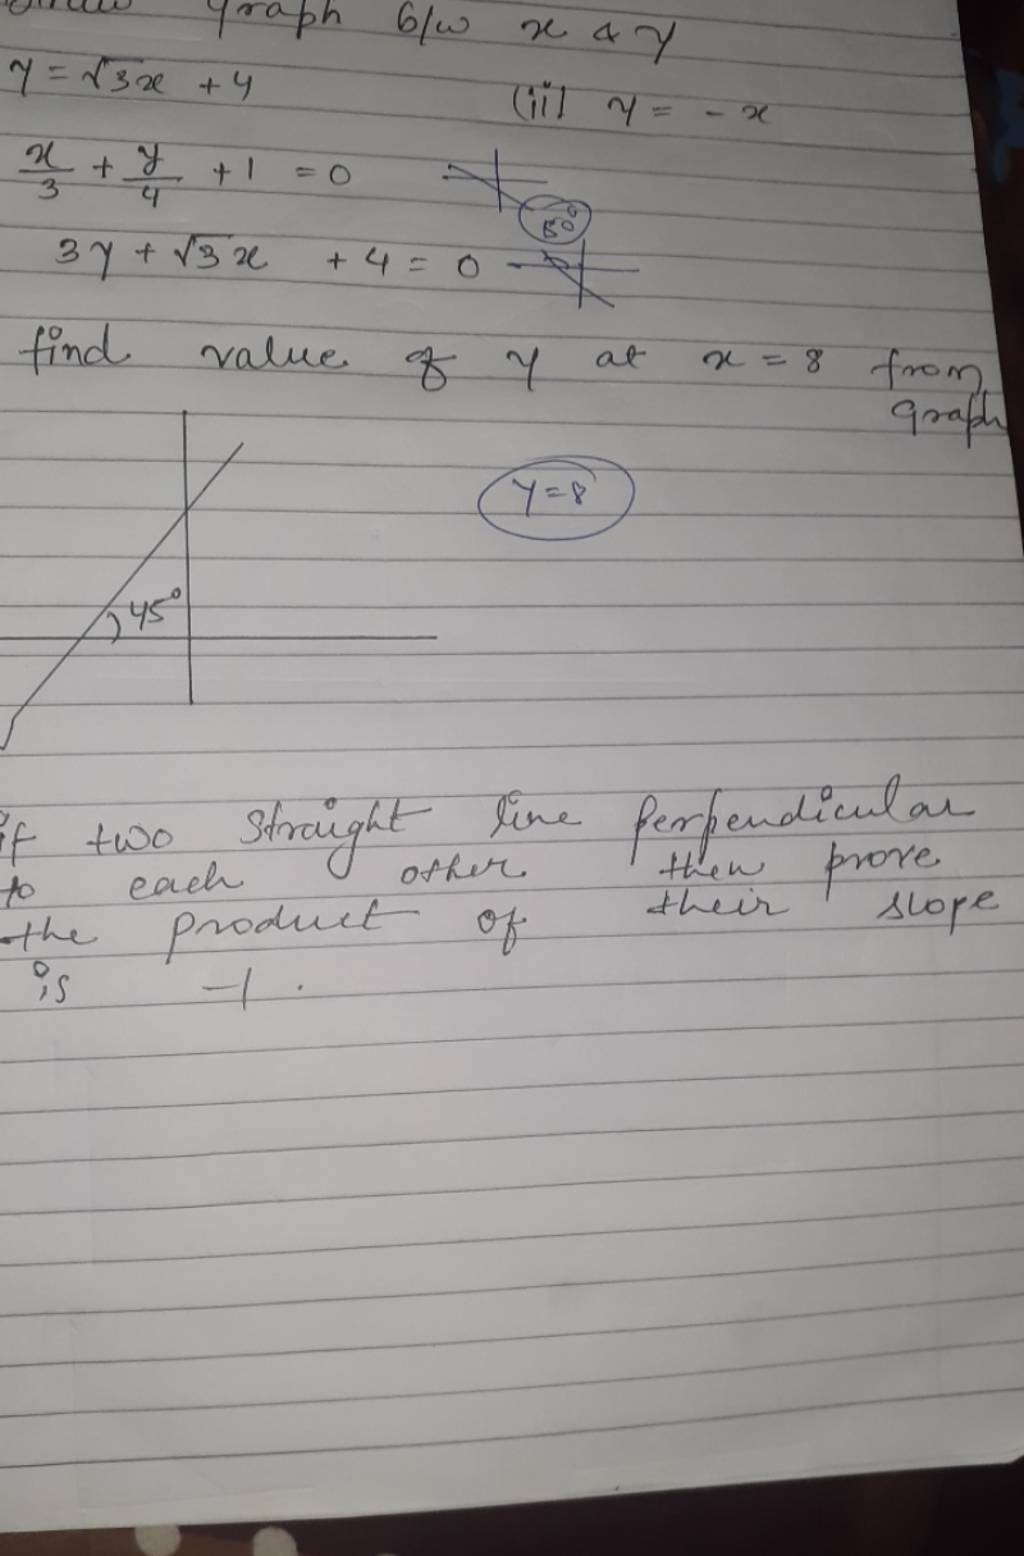 graph b/w x & y
y = √3x + 4
(ii) y = - x
x/3 + y/4 + 1 = 0
3y + √3x + 4 = 0
find value of y at x = 8 from
graph
y = 8
45°
if two straight line perpendicular
to each other then prove
the product of their slope
is -1 .